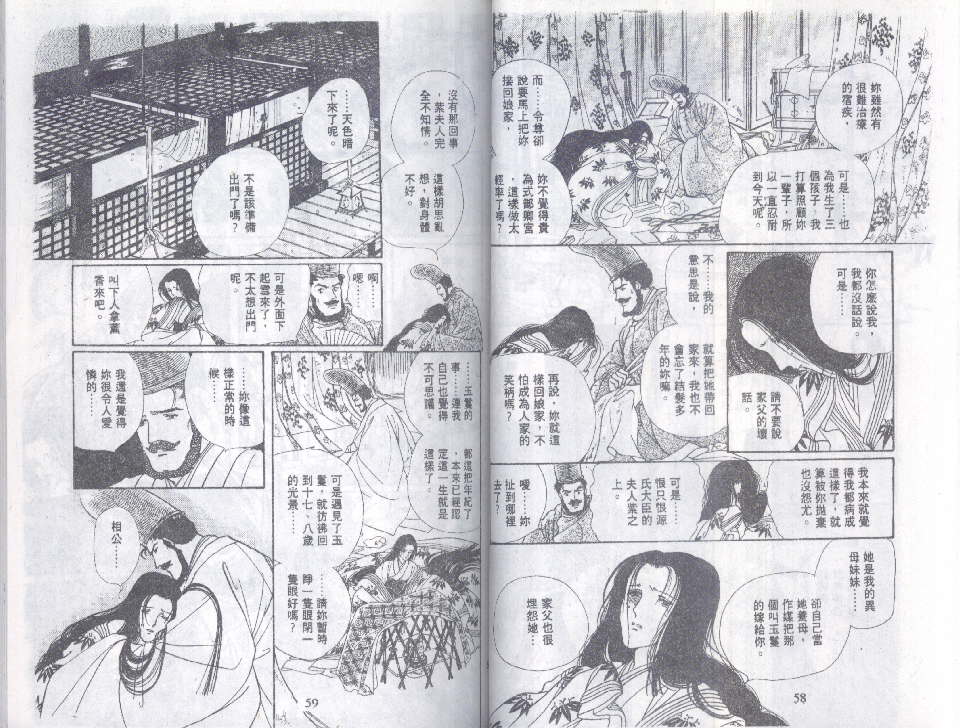 妳雖然有
很難治療
的宿疾，
可是……也
為我生了三
個孩子，我
打算照顧妳
一輩子，所
以一直忍耐
到今天呢。
而……令尊卻
說要馬上把妳
接回娘家，
妳不覺得貴
為式部卿宮
，這樣做太
輕率了嗎？
你怎麼說我，
我都沒話說。
可是……
請不要說
家父的壞
話。
不……我的
意思是說，
就算把她帶回
家來，我也不
會忘了結髮多
年的妳嘛。
再說，妳就這
樣回娘家，不
怕成為人家的
笑柄嗎？
我本來就覺
得我都病成
這樣了，就
算被你拋棄
也沒怨尤。
可是……
恨只恨源
氏大臣的
夫人紫之
上。
噯……妳
扯到哪裡
去了？
她是我的異
母妹妹……
卻自己當
她養母，
作媒把那
個叫玉鬘
的嫁給你。
家父也很
埋怨她…
58
沒有那回事
，紫夫人完
全不知情。
這樣胡思亂
想，對身體
不好。
……天色暗
下來了呢。
不是該準備
出門了嗎？
啊……
嗯……
可是外面下
起雪來了，
不太想出門
呢。
叫下人拿薰
香來吧。
……玉鬘的
事……連我
自己也覺得
不可思議。
都這把年紀了
，本來已經認
定這一生就是
這樣了。
可是遇見了玉
鬘，就彷彿回
到十七、八歲
的光景……
……請妳暫時
睜一隻眼閉一
隻眼好嗎？
……妳像這
樣正常的時
候
我還是覺得
妳很令人愛
憐的…
相公…
59